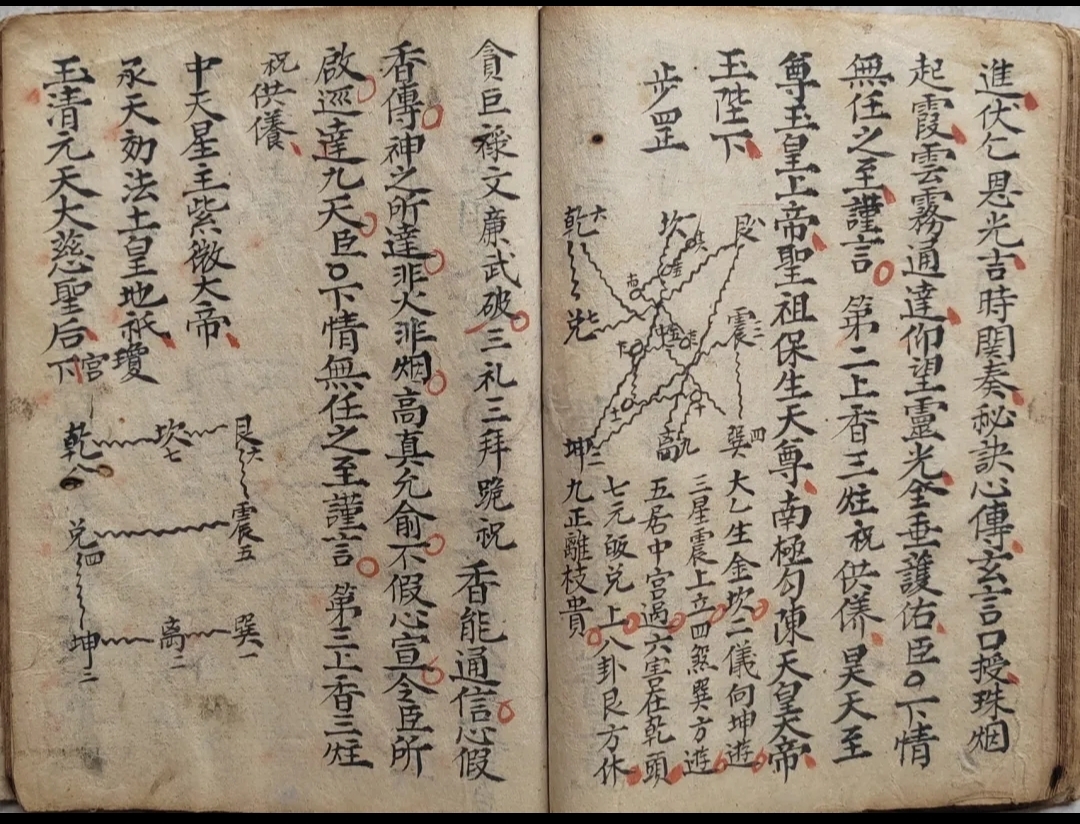 進伏乞恩光吉時関奏秘訣心傳玄言口授珠烟
起霞雲霧通達仰望靈光全垂護佑臣○下情
無任之至謹言○第二上香三炷祝供儀昊天至
尊玉皇上帝聖祖保生天尊南極勾陳天皇大帝
玉陛下
步罡
艮
坎
乾六
兌七
震三
巽四
离九
坤二
大乙生金坎二儀向坤遊
三星震上立四煞巽方遊
五居中宮過六害在乾頭
七元皈兌上八卦艮方休
九正離枝貴
貪巨祿文廉武破三礼三拜跪祝香能通信心假
香傳神之所達非火非烟高真允俞不假心宣令臣所
啟巡達九天臣○下情無任之至謹言第三上香三炷
祝供儀
中天星主紫微大帝
承天効法土皇地祇瓊
玉清元天大慈聖后宮下
艮六
坎七
乾八
震五
兌四
巽一
离二
坤三